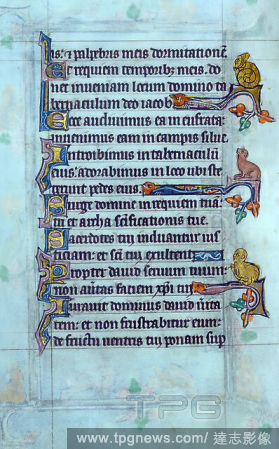 is: et palpebris meis dormitationē
Et requiem temporibȝ meis. do
nec inveniam locum domino ta
bernaculum deo iacob.
Ecce audivimus eam in eufrata
invenimus eam in campis silue.
Introibimus in tabernaculum
eius: adorabimus in loco ubi ste
terunt pedes eius.
Surge domine in requiem tuā
tu et archa scificationis tue.
Sacerdotes tui induantur ius
ticiam: et sci tui exultent
Propter david servum tuum:
non avtas faciem xpi tui
Iuravit dominus david vita
tem: et non frustrabitur eum:
de fructu ventris tui ponam sup
TPG
www.tpgnews.com/ 達志影像